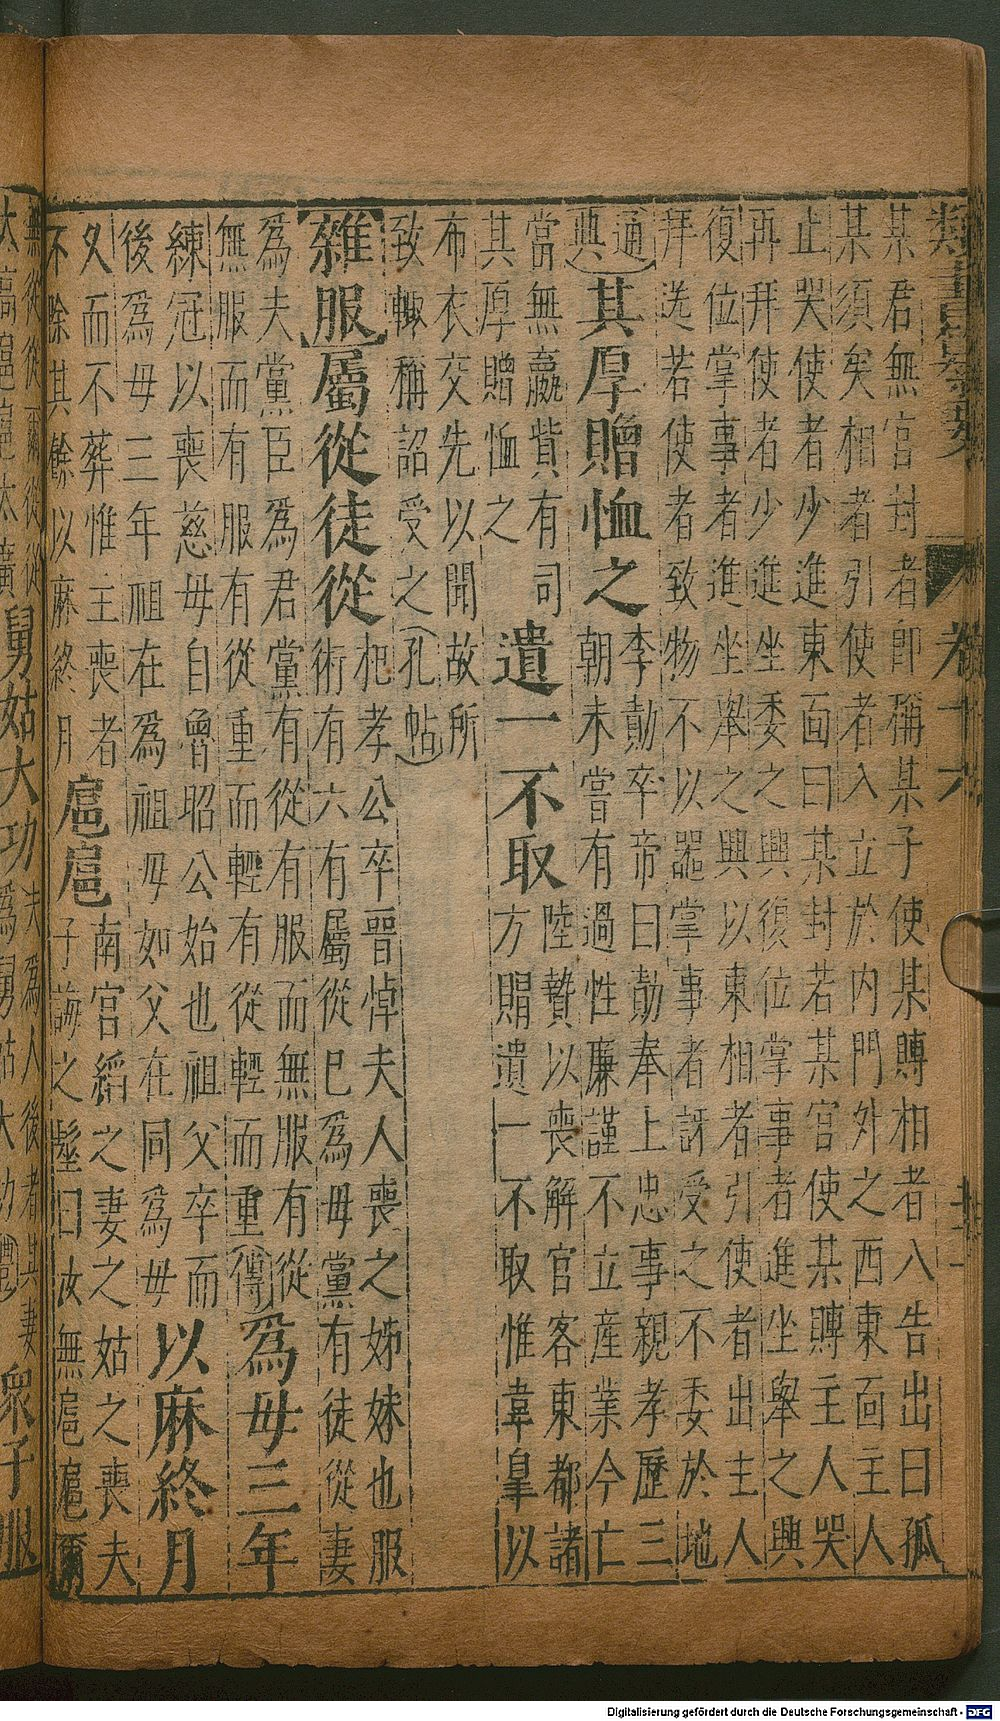 卷十六
某君無官封者卽稱某子使某賻相者入告出曰孤
某須矣相者引使者入立於內門外之西東面主人
止哭使者少進東面曰某封若某官使某賻主人哭
再拜使者少進坐委之興復位掌事者進坐舉之興
復位掌事者進坐舉之興以東相者引使者出主人
拜送若使者致物不以器掌事者訝受之不委於地
通典
其厚贈恤之
李勣卒帝曰勣奉上忠事親孝歷三
朝未嘗有過性廉謹不立産業今亡
當無嬴貲有司
其厚贈恤之
遺一不取
陸贄以喪解官客東都諸
方賵遺一不取惟韋皐以
布衣交先以聞故所
致輙稱詔受之
孔帖
雜服
屬從徒從
杞孝公卒晉悼夫人喪之姊妹也服
術有六有屬從巳爲毋黨有徒從妻
爲夫黨臣爲君黨有從有服而無服有從
無服而有服有從重而輕有從輕而重
傳
爲毋三年
練冠以喪慈毋自魯昭公始也祖父卒而
後爲毋三年祖在爲祖毋如父在同爲毋
以麻終月
久而不葬惟主喪者
不除其餘以麻終月
扈扈
南宮縚之妻之姑之喪夫
子誨之髽曰汝無扈扈爾
舅姑大功
夫爲人後者其妻
爲舅姑大功
禮記
衆子服
Digitalisierung gefördert durch die Deutsche Forschungsgemeinschaft - DFG